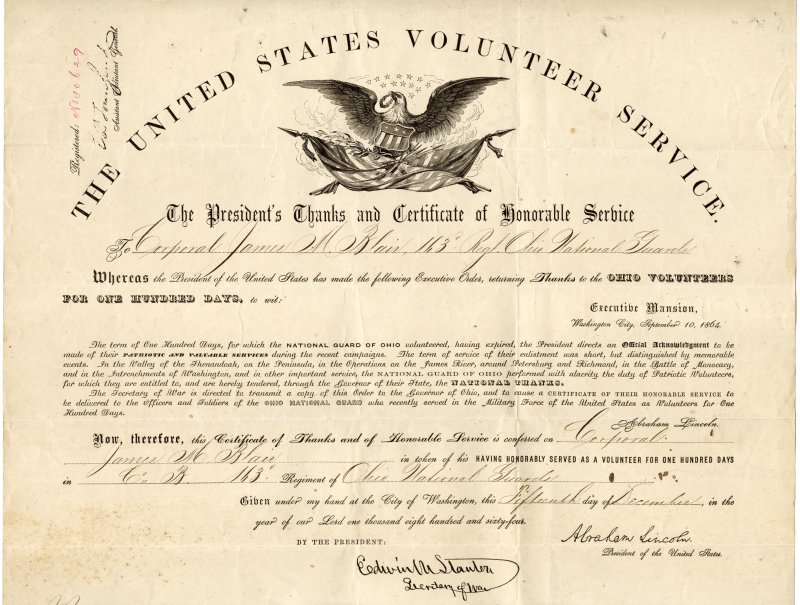 THE UNITED STATES VOLUNTEER SERVICE.
Registered: No 30629
Assistant Adjutant General.
The President's Thanks and Certificate of Honorable Service
To Corporal James M Blair, 163d Regt. Ohio National Guards
Whereas the President of the United States has made the following Executive Order, returning Thanks to the OHIO VOLUNTEERS
FOR ONE HUNDRED DAYS, to wit:
Executive Mansion,
Washington City, September 10, 1864.
The term of One Hundred Days, for which the NATIONAL GUARD OF OHIO volunteered, having expired, the President directs an Official Acknowledgment to be
made of their PATRIOTIC AND VALUABLE SERVICES during the recent campaigns. The term of service of their enlistment was short, but distinguished by memorable
events. In the Valley of the Shenandoah, on the Peninsula, in the Operations on the James River, around Petersburg and Richmond, in the Battle of Monocacy,
and in the Intrenchments of Washington, and in other important service, the NATIONAL GUARD OF OHIO performed with alacrity the duty of Patriotic Volunteers,
for which they are entitled to, and are hereby tendered, through the Governor of their State, the NATIONAL THANKS.
The Secretary of War is directed to transmit a copy of this Order to the Governor of Ohio, and to cause a CERTIFICATE OF THEIR HONORABLE SERVICE to
be delivered to the Officers and Soldiers of the OHIO NATIONAL GUARD who recently served in the Military Force of the United States as Volunteers for One
Hundred Days.
Abraham Lincoln.
Now, therefore, this Certificate of Thanks and of Honorable Service is conferred on Corporal
James M Blair in token of his HAVING HONORABLY SERVED AS A VOLUNTEER FOR ONE HUNDRED DAYS
in Co B 163d Regiment of Ohio National Guards
Given under my hand at the City of Washington, this Fifteenth day of December, in the
year of our Lord one thousand eight hundred and sixty-four.
BY THE PRESIDENT:
Abraham Lincoln.
President of the United States.
Edwin M Stanton
Secretary of War